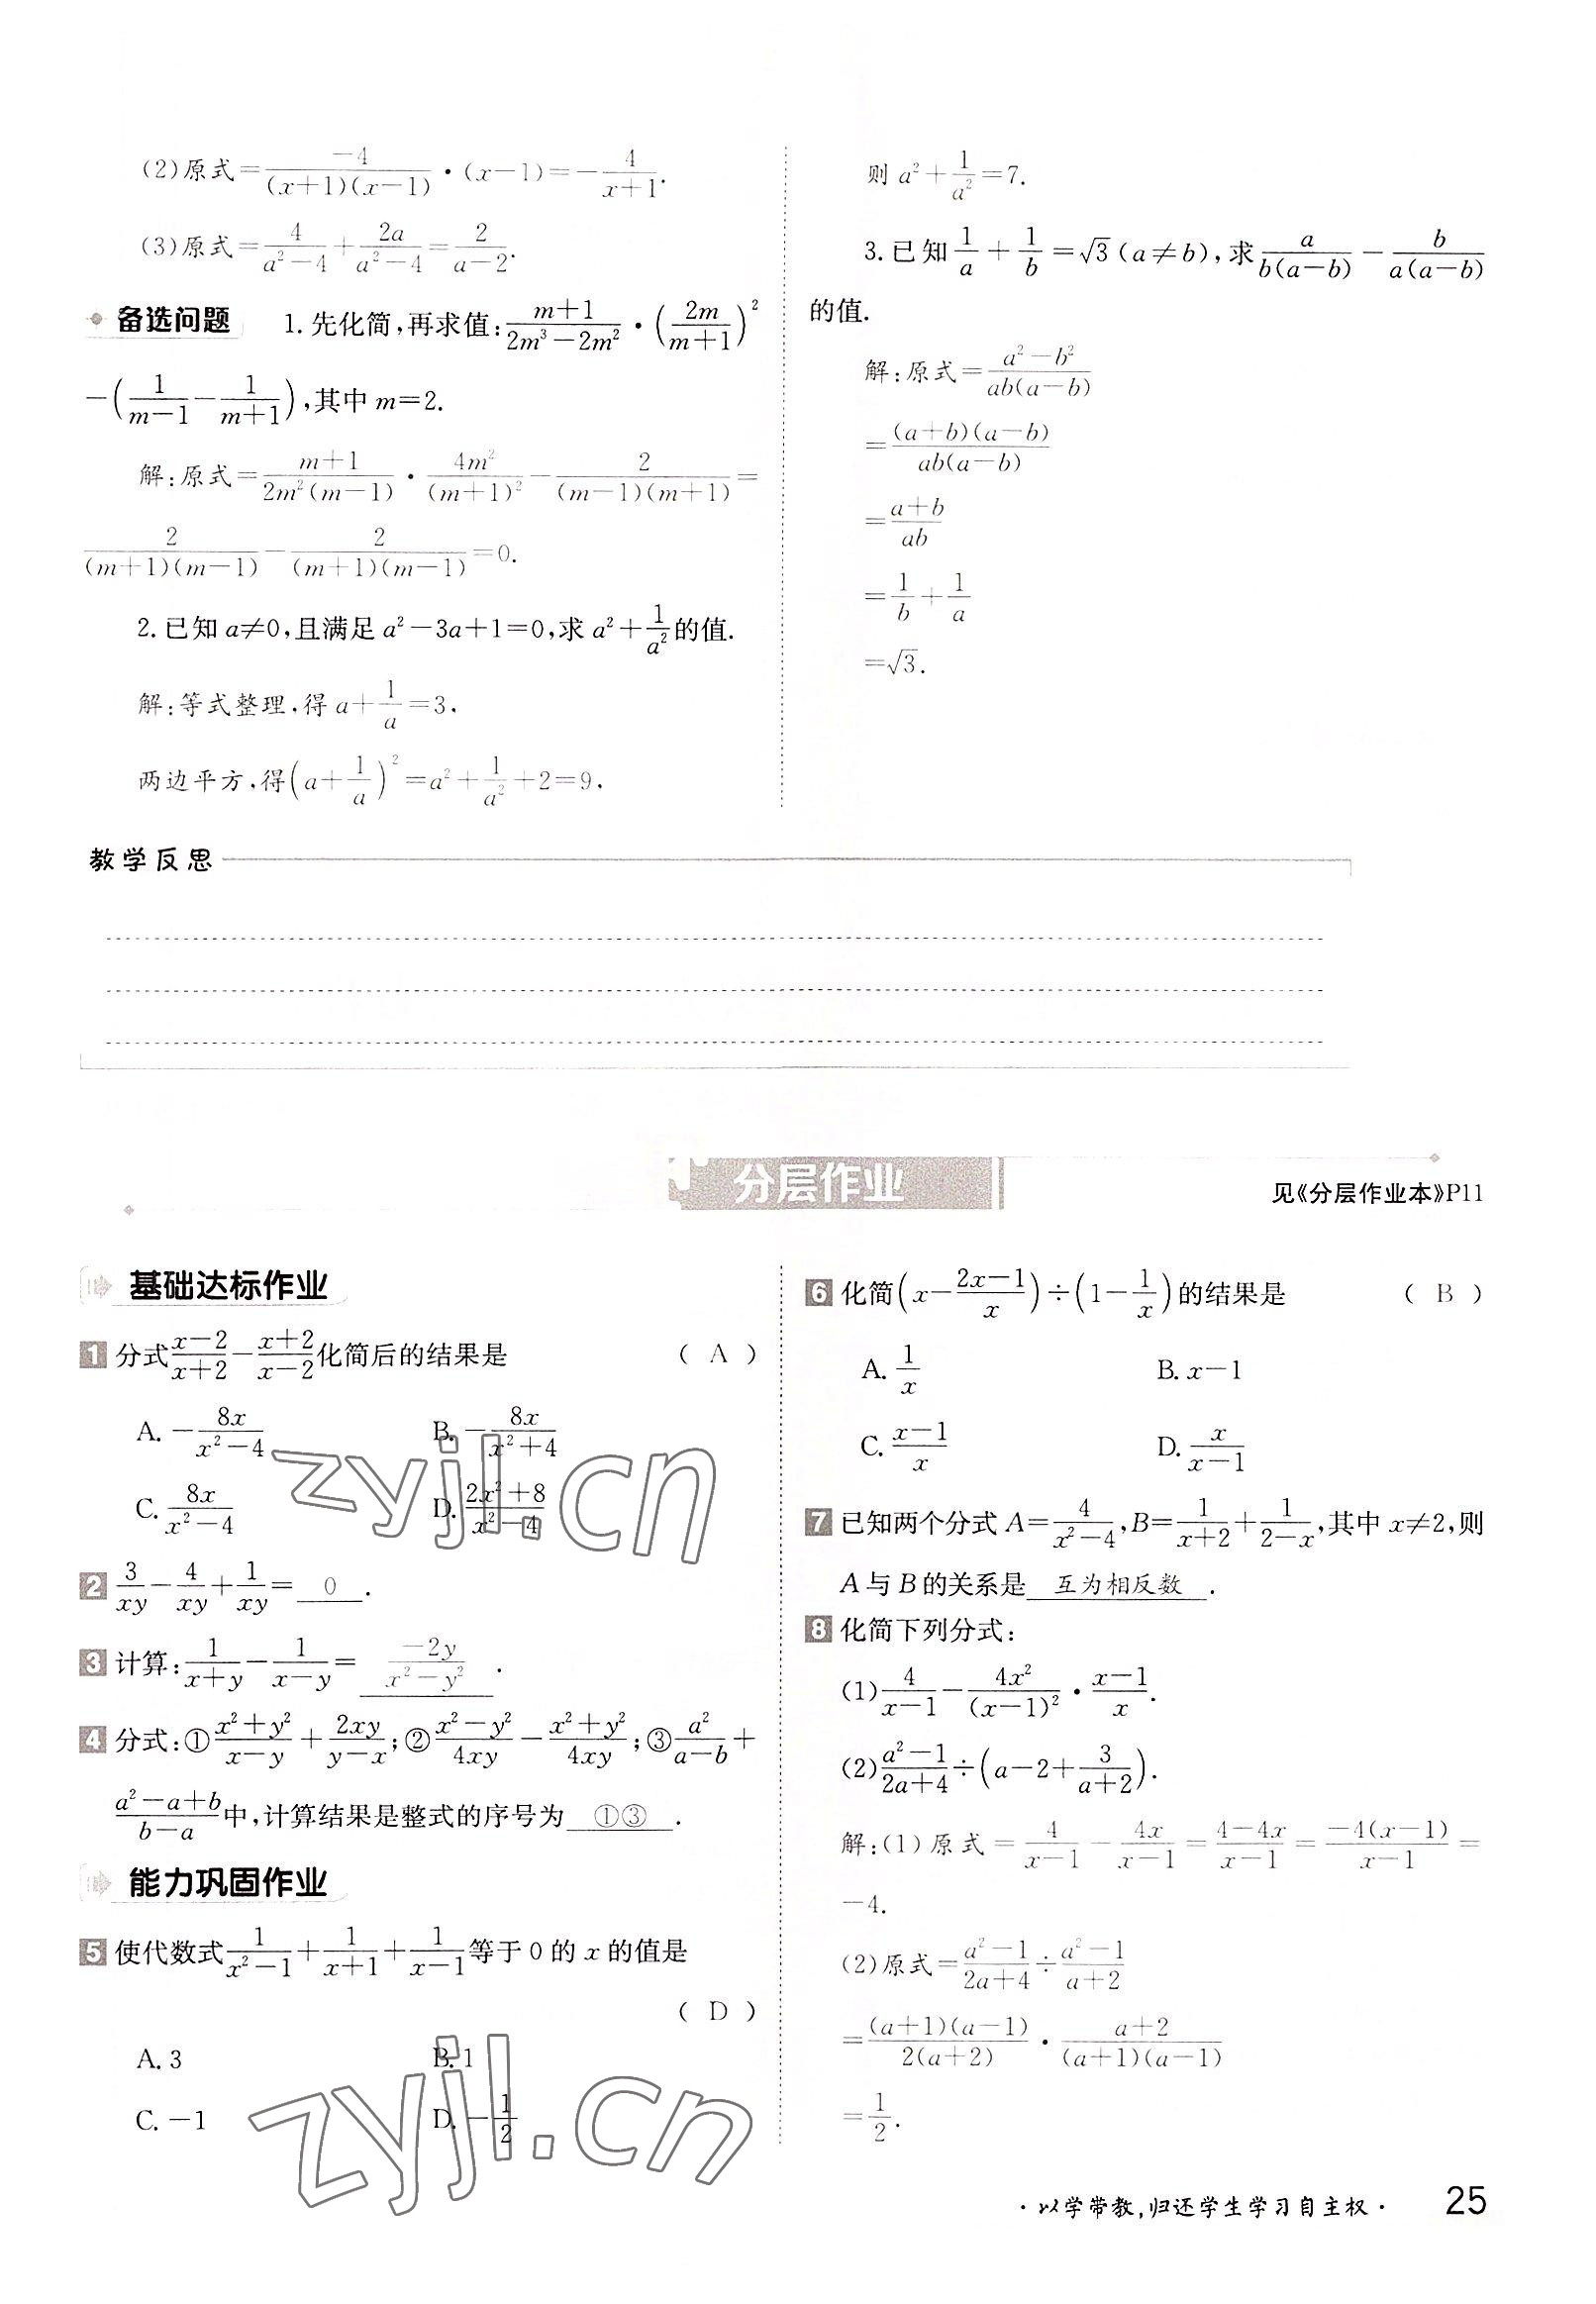 (2)原式=\frac{-4}{(x+1)(x-1)}·(x-1)=-\frac{4}{x+1}.
(3)原式=\frac{4}{a²-4}+\frac{2a}{a²-4}=\frac{2}{a-2}.
备选问题 1.先化简,再求值:\frac{m+1}{2m³-2m²}·(\frac{2m}{m+1})²
-(\frac{1}{m-1}-\frac{1}{m+1}),其中 m=2.
解:原式=\frac{m+1}{2m²(m-1)}·\frac{4m²}{(m+1)²}-\frac{2}{(m-1)(m+1)}=
\frac{2}{(m+1)(m-1)}-\frac{2}{(m+1)(m-1)}=0.
2.已知 a≠0,且满足 a²-3a+1=0,求 a²+\frac{1}{a²}的值.
解:等式整理,得 a+\frac{1}{a}=3,
两边平方,得(a+\frac{1}{a})²=a²+\frac{1}{a²}+2=9,
则 a²+\frac{1}{a²}=7.
3.已知\frac{1}{a}+\frac{1}{b}=√3(a≠b),求\frac{a}{b(a-b)}-\frac{b}{a(a-b)}
的值.
解:原式=\frac{a²-b²}{ab(a-b)}
=\frac{(a+b)(a-b)}{ab(a-b)}
=\frac{a+b}{ab}
=\frac{1}{b}+\frac{1}{a}
=√3.
教学反思
分层作业
见《分层作业本》P11
基础达标作业
1 分式\frac{x-2}{x+2}-\frac{x+2}{x-2}化简后的结果是 ( A )
A. -\frac{8x}{x²-4} B. -\frac{8x}{x²+4}
C. \frac{8x}{x²-4} D. \frac{2x²+8}{x²-4}
2 \frac{3}{xy}-\frac{4}{xy}+\frac{1}{xy}= 0 .
3 计算:\frac{1}{x+y}-\frac{1}{x-y}= \frac{-2y}{x²-y²} .
4 分式:①\frac{x²+y²}{x-y}+\frac{2xy}{y-x};②\frac{x²-y²}{4xy}-\frac{x²+y²}{4xy};③\frac{a²}{a-b}+
\frac{a²-a+b}{b-a}中,计算结果是整式的序号为 ①③ .
能力巩固作业
5 使代数式\frac{1}{x²-1}+\frac{1}{x+1}+\frac{1}{x-1}等于 0 的 x 的值是
( D )
A. 3 B. 1
C. -1 D. -\frac{1}{2}
6 化简(x-\frac{2x-1}{x})÷(1-\frac{1}{x})的结果是 ( B )
A. \frac{1}{x} B. x-1
C. \frac{x-1}{x} D. \frac{x}{x-1}
7 已知两个分式 A=\frac{4}{x²-4},B=\frac{1}{x+2}+\frac{1}{2-x},其中 x≠2,则
A 与 B 的关系是 互为相反数 .
8 化简下列分式:
(1)\frac{4}{x-1}-\frac{4x²}{(x-1)²}·\frac{x-1}{x}.
(2)\frac{a²-1}{2a+4}÷(a-2+\frac{3}{a+2}).
解:(1)原式=\frac{4}{x-1}-\frac{4x}{x-1}=\frac{4-4x}{x-1}=\frac{-4(x-1)}{x-1}=
-4.
(2)原式=\frac{a²-1}{2a+4}÷\frac{a²-1}{a+2}
=\frac{(a+1)(a-1)}{2(a+2)}·\frac{a+2}{(a+1)(a-1)}
=\frac{1}{2}.
zyjl.cn
zyjl.cn
·以学带教,归还学生学习自主权· 25